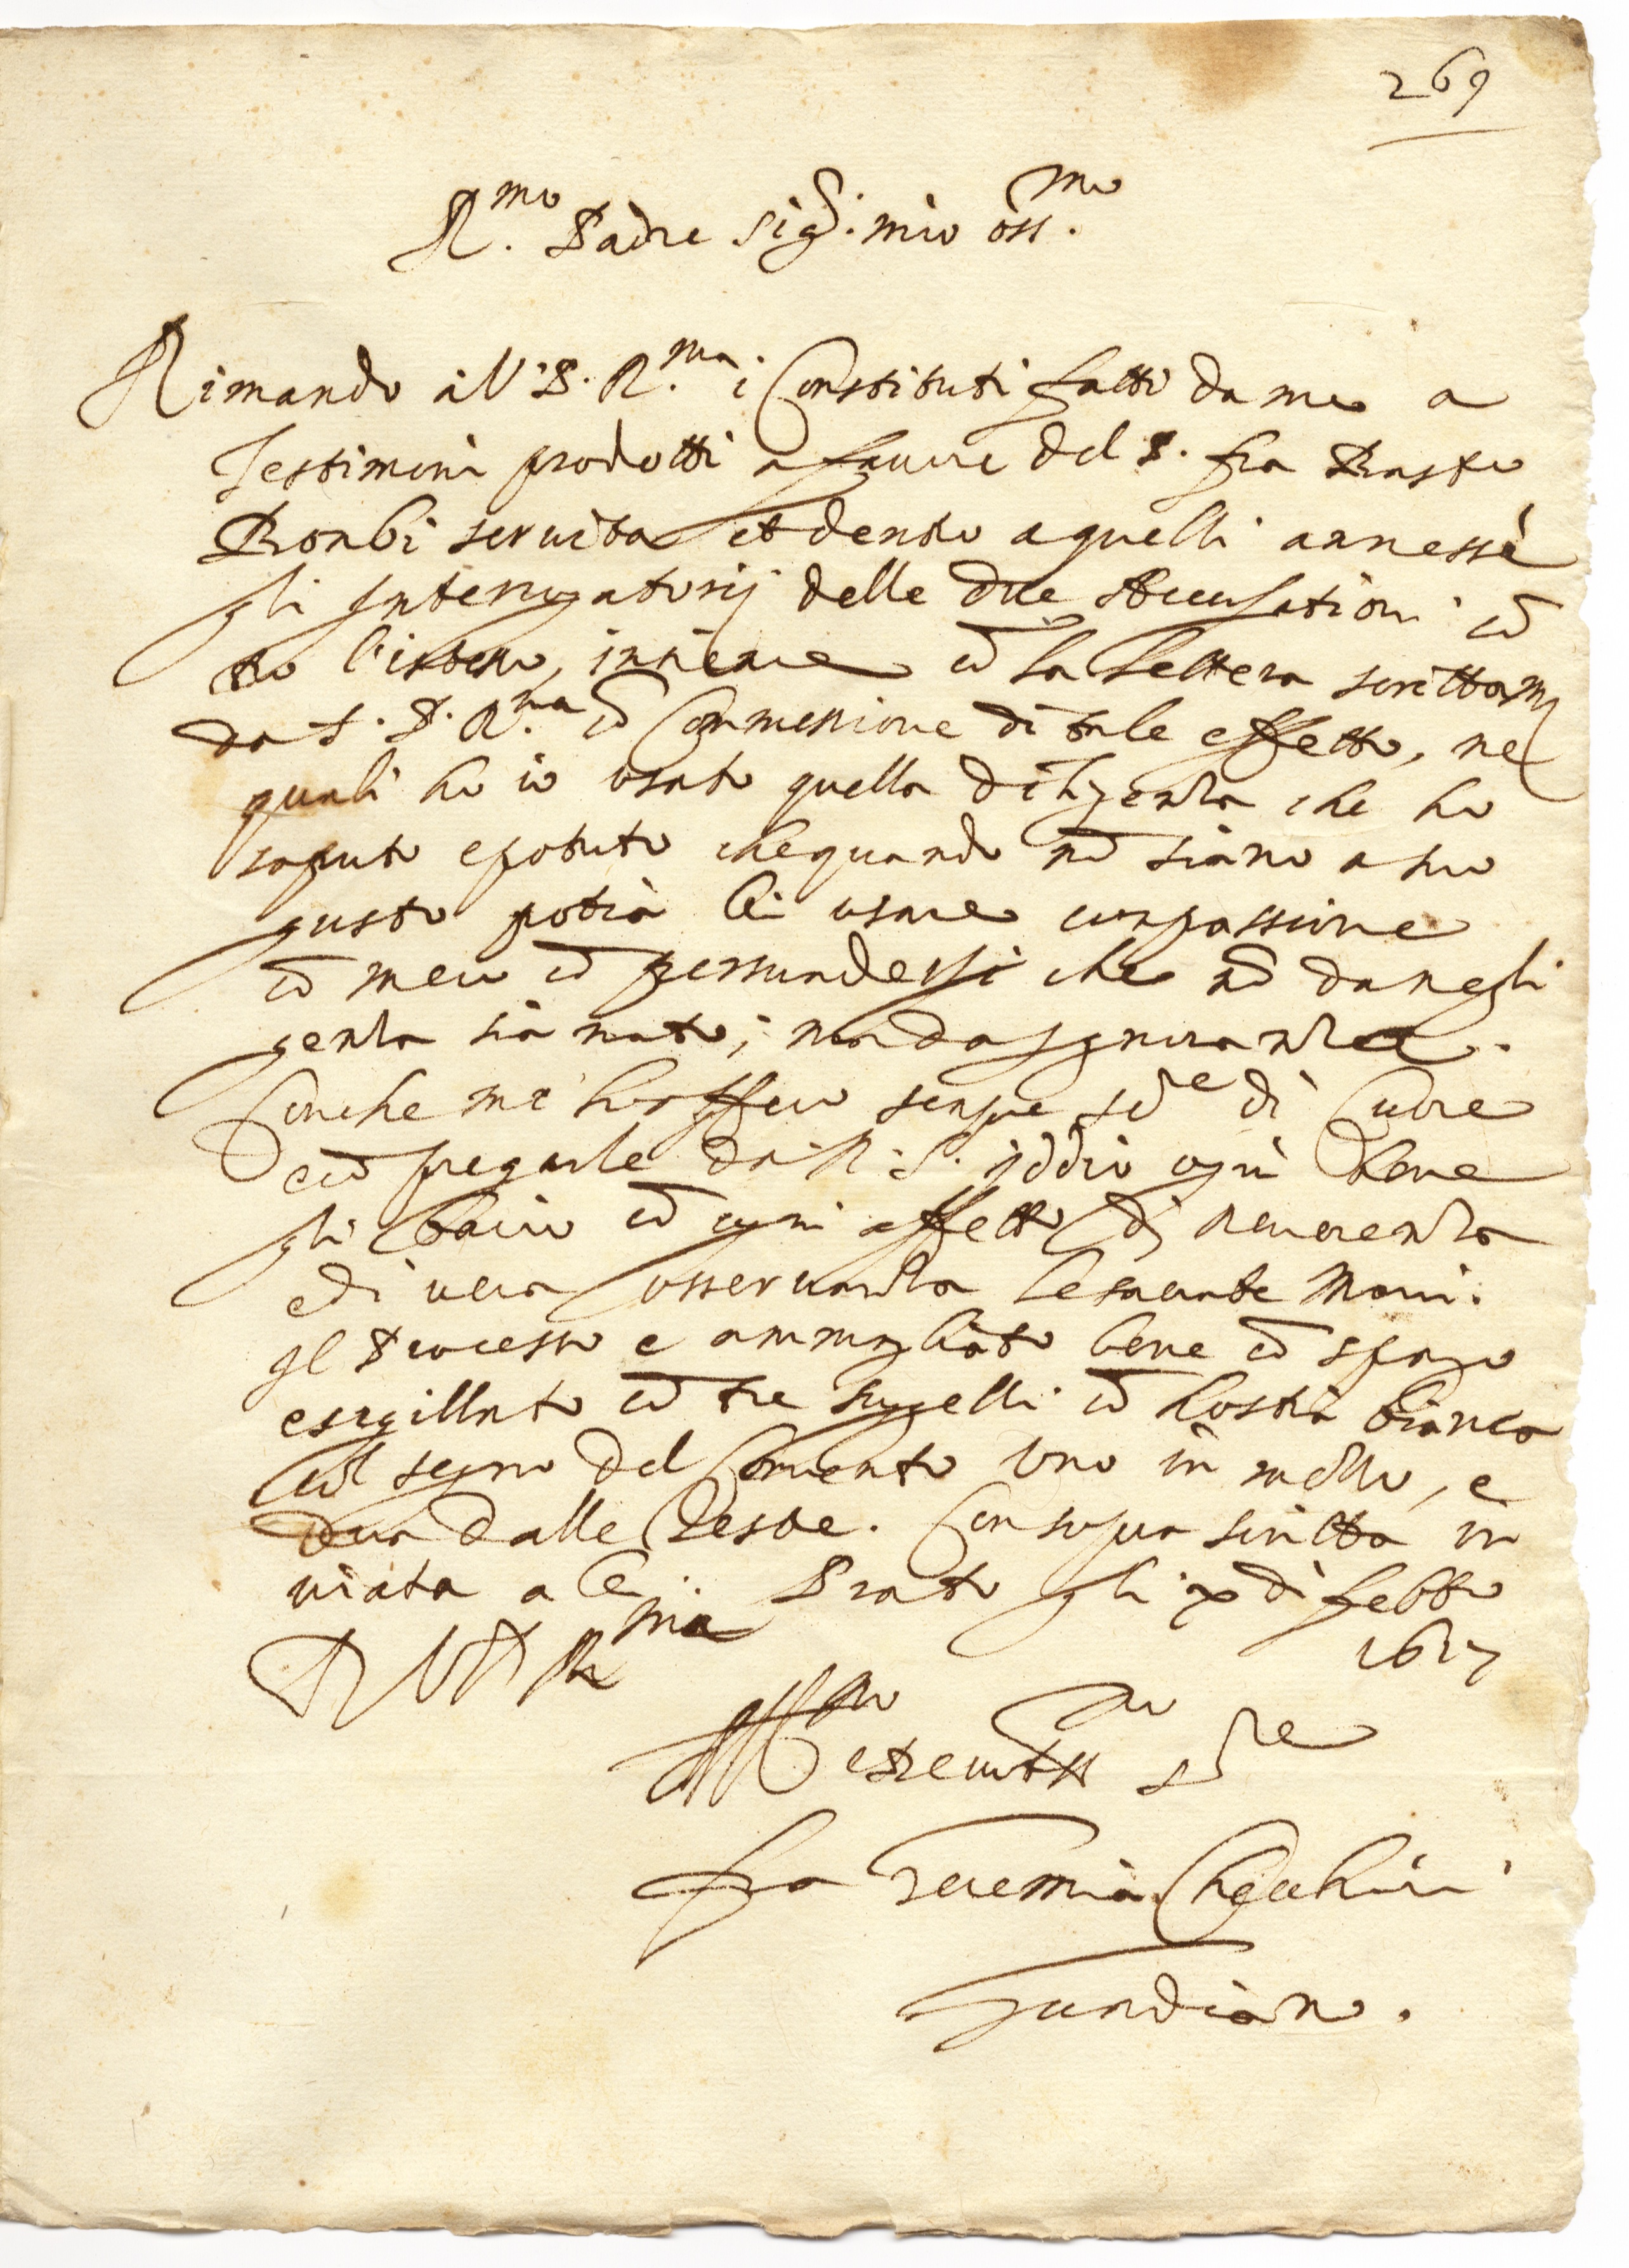 269
R.mo Padre Sig.r mio oss.mo
Rimando à V. P. R.ma i Constituti fatti da me a
Testimoni prodotti a fauore del P. fra
seruita et dento a quelli annessi
gli Interrogatorij delle due Accusationi cō
l'istesso, insieme cō la lettera scrittami
da S. P. R.ma cō Commessione di tale effetto, ne
quali ho io usato quella diligenza che ho
saputo e potuto che quando nō siano a suo
gusto potrà lei usare conpassione
cō meco cō persuadersi che nō da negli
genza sia nato; ma da Ignoranza.
Conche me li offero senpre s.re di Cuore
e cō pregarle da N. S. iddio ogni bene
gli bacio cō ogni affetto di reuerenza
e di uera osseruanza le sacrate Mani.
Il Processo e ammagliato bene cō spago
e sigillato cō tre sugelli cō hostia bianca
col segno del Conuento uno in mezzo, e
dua dalle teste. Con sopra scritta in
uiata a lei. Prato gli x di febb.o
1617
D V P R.ma
Aff.mo e seruit.mo s.re
fra Jeremia
Guardiano.